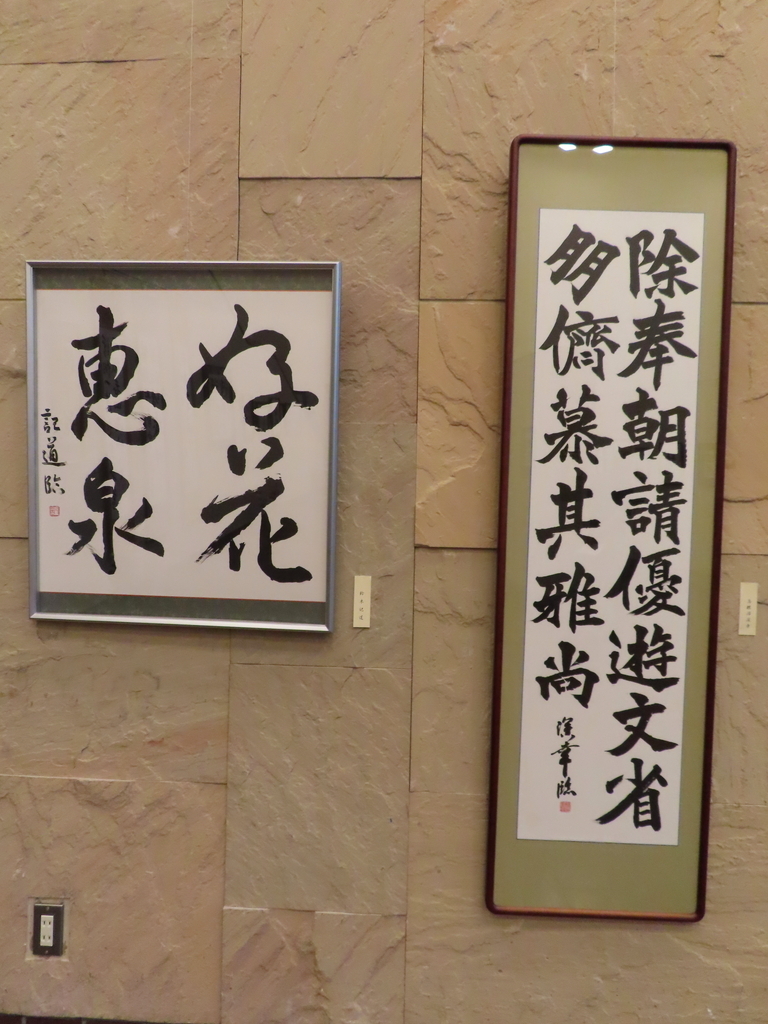 好花
惠泉
記道臨
除奉朝請優遊文省
多儕慕其雅尚